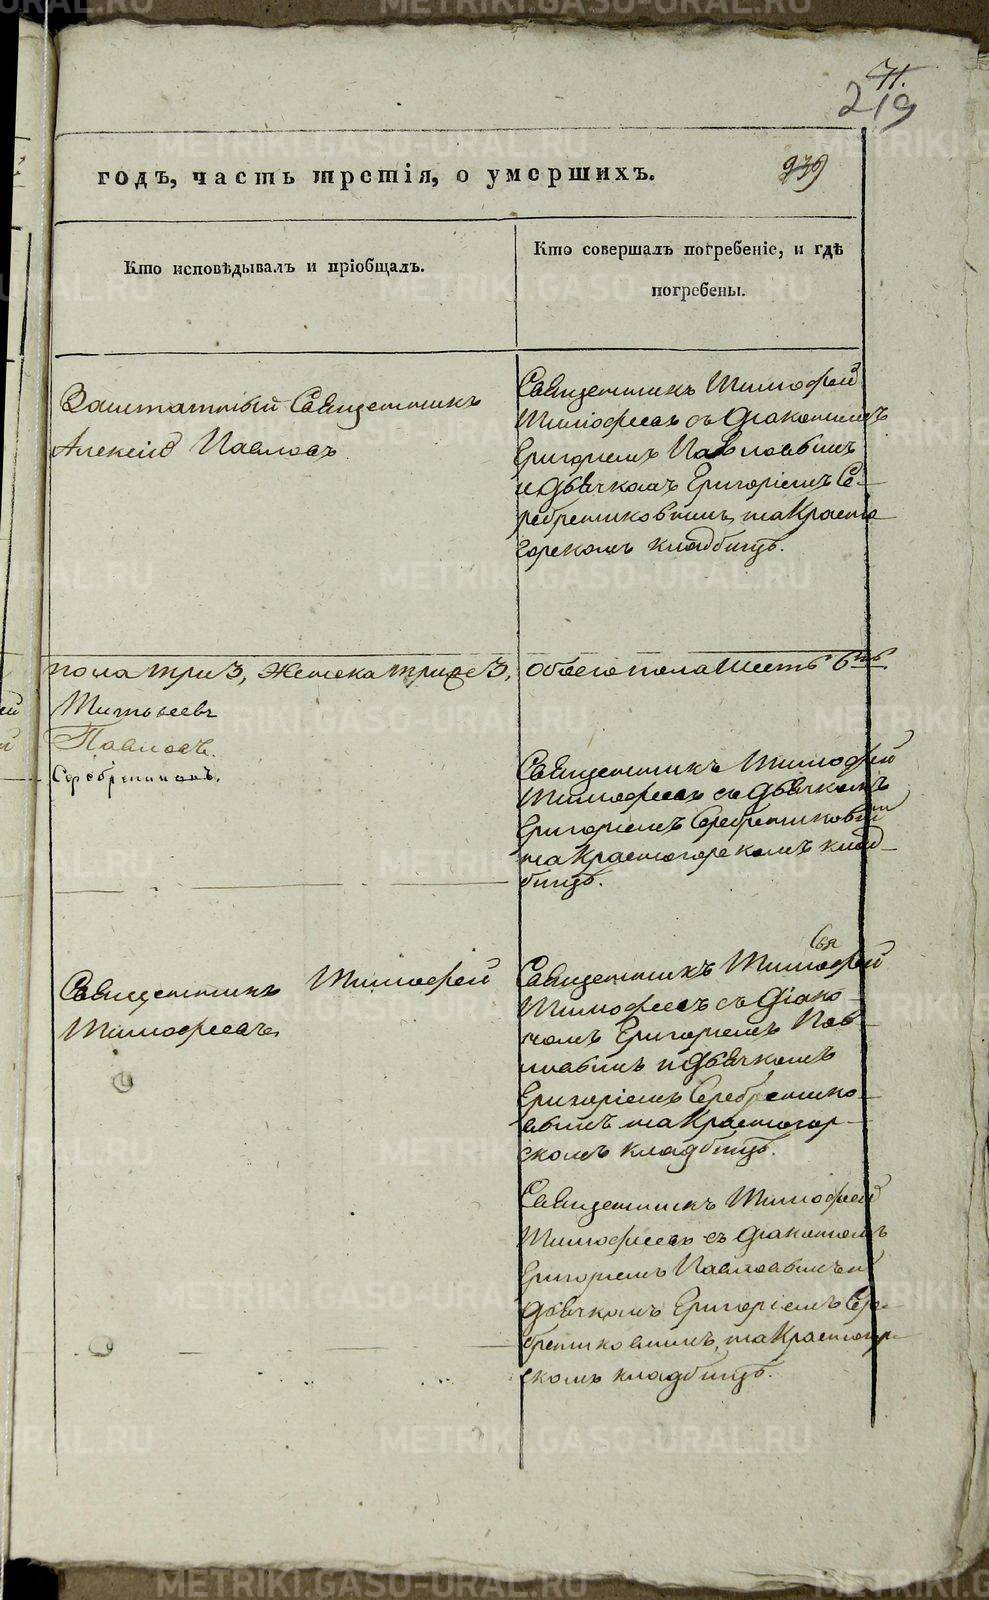 71.
219
939
годъ, часть третія, о умершихъ.
Кто исповѣдывалъ и пріобщалъ.
Кто совершалъ погребеніе, и гдѣ
погребены.
Заштатный Священникъ
Алексій Павловъ
Священникъ Тимофей
Тимофеевъ съ діакономъ
Григоріемъ Павловымъ
и дьячкомъ Григоріемъ Се-
ребрениковымъ, на Красно
горскомъ кладбищѣ.
пола три 3, женска три 3, обоего пола шесть 6ть
Павловъ.
Серебрениковъ.
Священникъ Тимофей
Тимофеевъ съ дьячкомъ
Григоріемъ Серебрениковым
на Красногорскомъ клад-
бищѣ.
Священникъ Тимофей
Тимофеевъ
Священникъ Тимофей
Тимофеевъ съ діако-
номъ Григоріемъ Пав-
ловымъ и дьячкомъ
Григоріемъ Серебренико-
вымъ на Красногор-
скомъ кладбищѣ.
Священникъ Тимофей
Тимофеевъ съ діакономъ
Григоріемъ Павловымъ и
дьячкомъ Григоріемъ Сере-
брениковымъ, на Красногор-
скомъ кладбищѣ.
METRIKI.GASO-URAL.RU